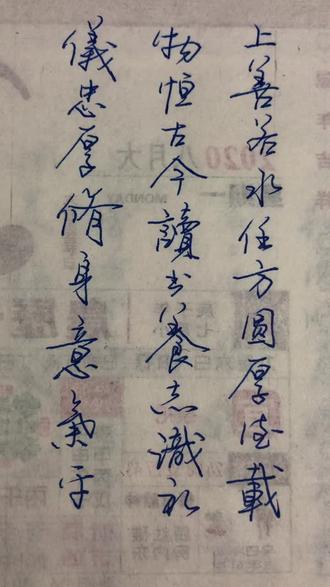 上善若水任方圓厚德載
物恒古今讀書養志識礼
儀忠厚脩身意氣平
2020 八月大
MONDAY